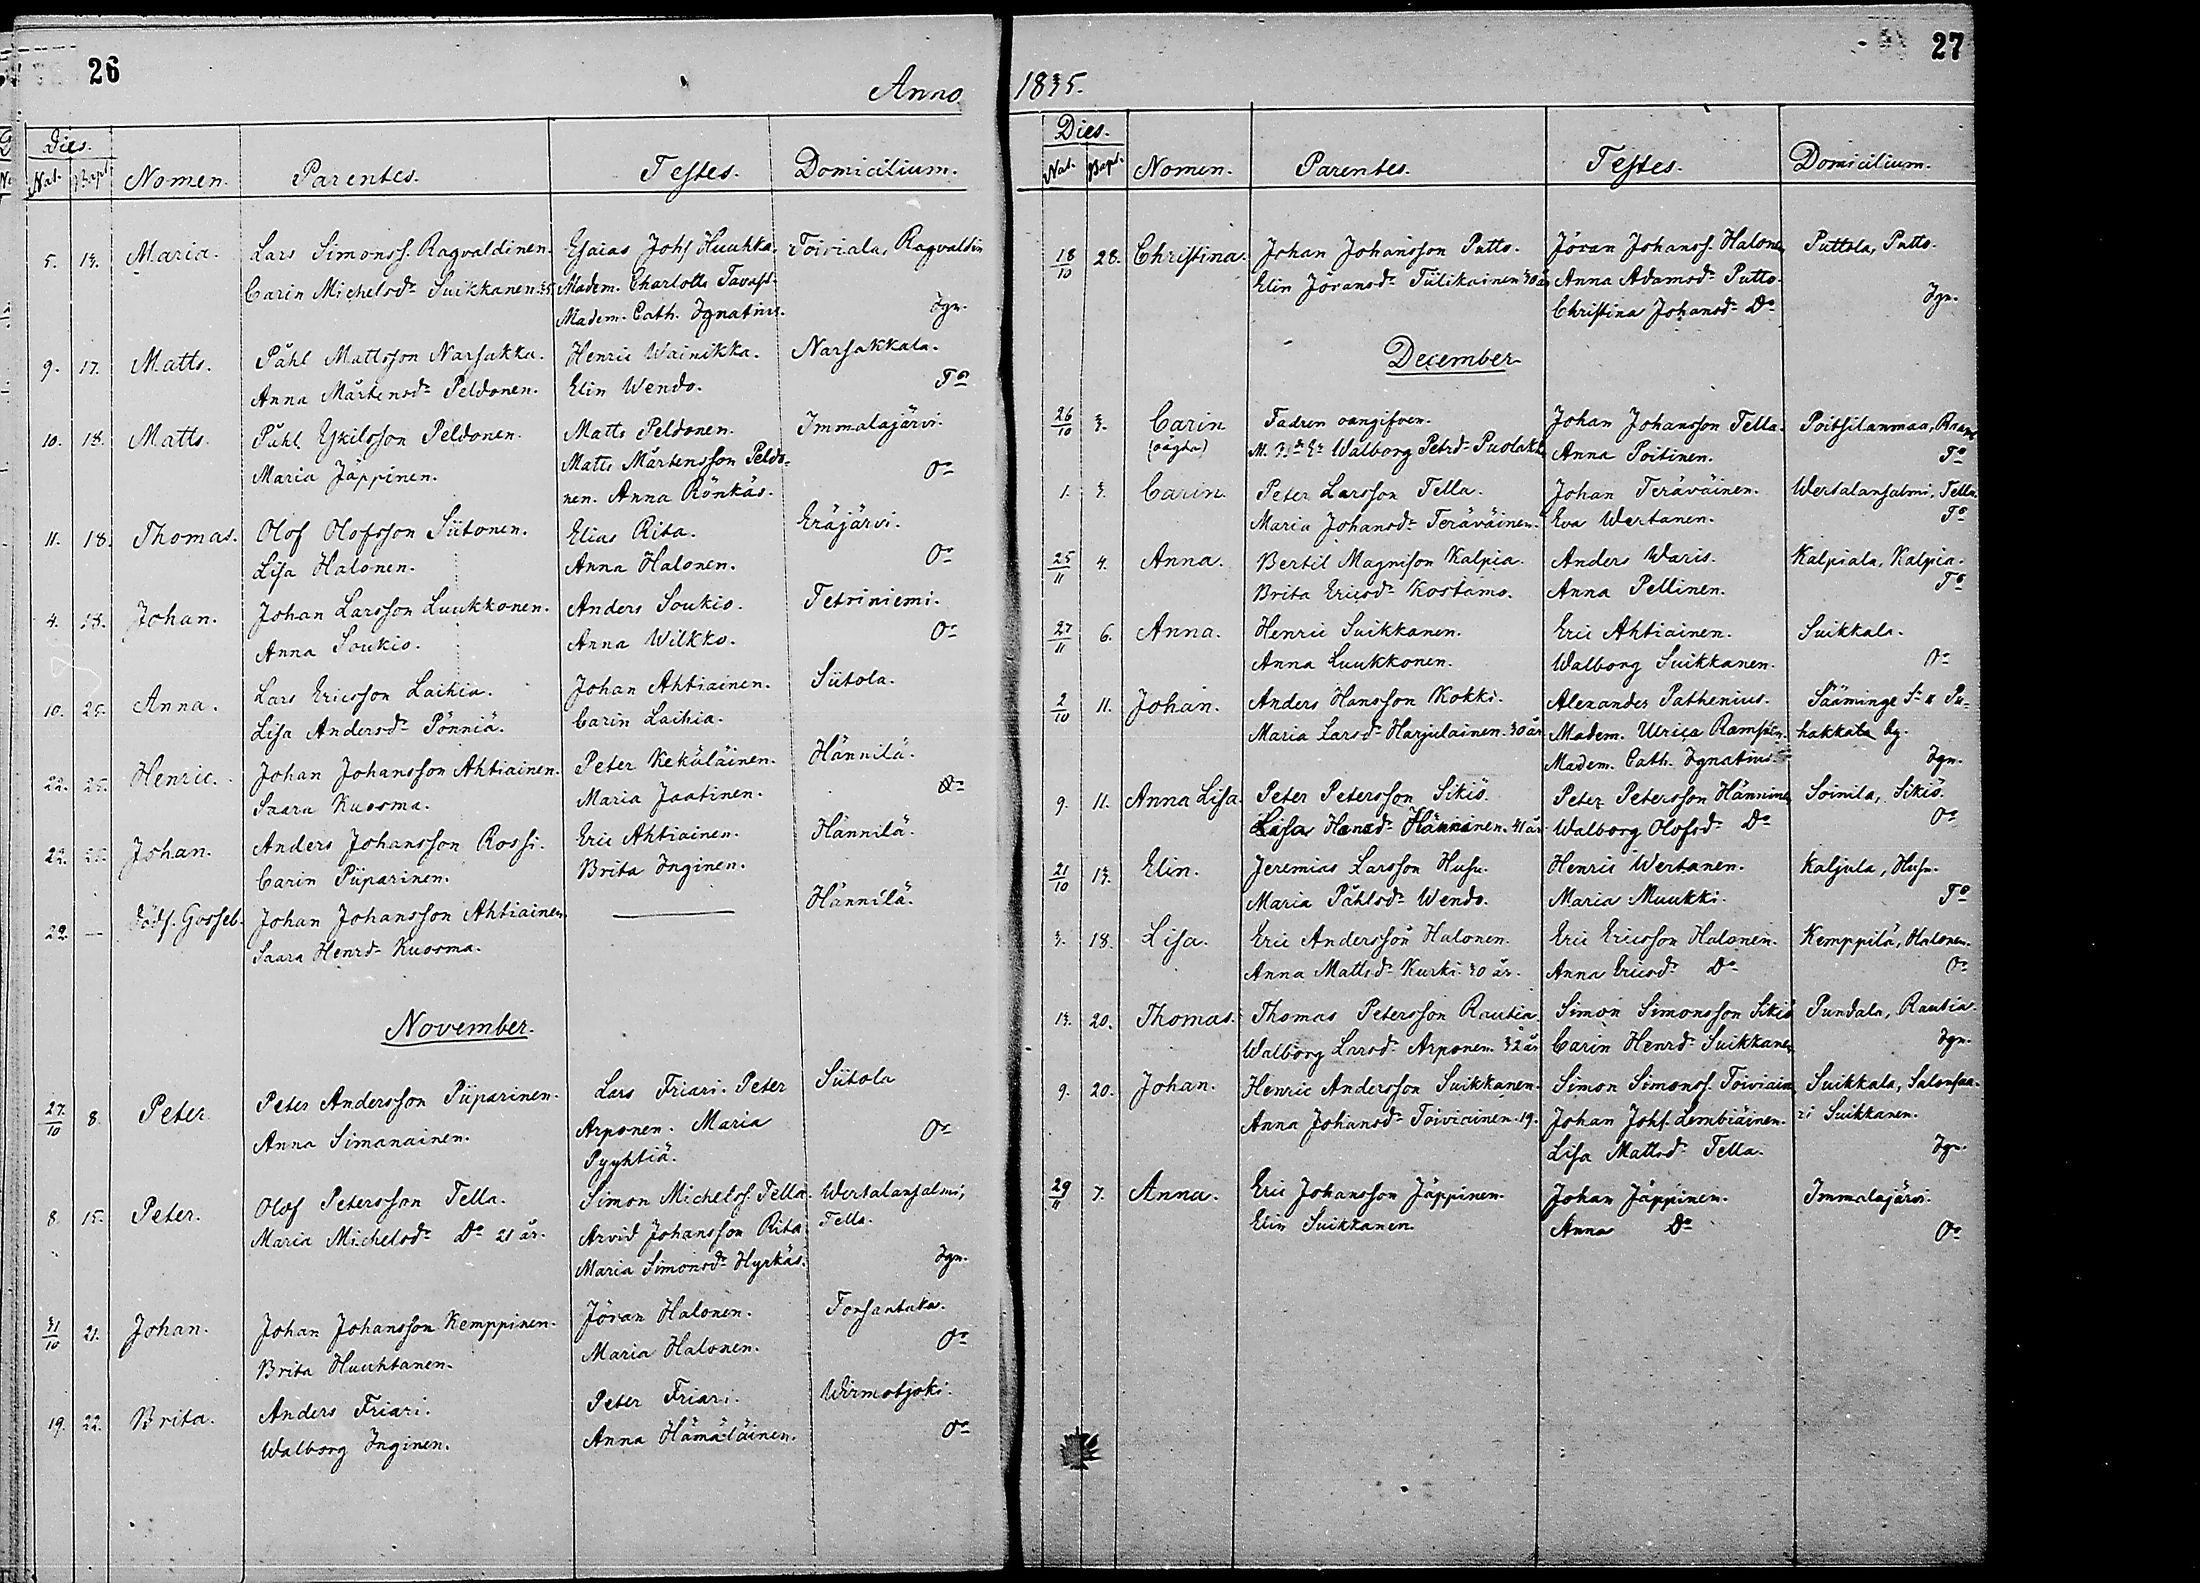 26
Anno
Dies.
Nat. Bapt. Nomen. Parentes. Testes. Domicilium.
5. 13. Maria. Lars Simonss. Ragvaldinen. Esaias Johs. Huuhka. Toiviala, Ragvaldin
Carin Michelsdr Suikkanen. 35 Madem. Charlotte Tavast.
Madem. Cath. Ignatius. Ign.
9. 17. Matts. Påhl Mattsson Narsakka. Henric Wainikka. Narsakkala.
Anna Mårtensdr Peldonen. Elin Wendo. To
10. 18. Matts. Påhl Eskilsson Peldonen. Matts Peldonen. Immalajärvi.
Maria Jäppinen. Matts Mårtensson Peldo-
nen. Anna Rönkäs. Oo
11. 18. Thomas. Olof Olofsson Siitonen. Elias Rita. Eräjärvi.
Lisa Halonen. Anna Halonen. Oo
4. 18. Johan. Johan Larsson Luukkonen. Anders Soukio. Tetriniemi.
Anna Soukio. Anna Wilkko. Oo
10. 25. Anna. Lars Ericsson Laihia. Johan Ahtiainen. Siitola.
Lisa Andersdr Pönniä. Carin Laihia.
22. 25. Henric. Johan Johansson Ahtiainen. Peter Kekäläinen. Hännilä.
Saara Kuosma. Maria Jaatinen. Oo
22. 25. Johan. Anders Johansson Rossi. Eric Ahtiainen. Hännilä.
Carin Piiparinen. Brita Inginen.
22. — Dödf. Gosseb. Johan Johansson Ahtiainen — Hännilä.
Saara Henrdr Kuosma.
November.
27/10 8. Peter. Peter Andersson Piiparinen. Lars Friari. Peter Siitola
Anna Simanainen. Arponen. Maria Oo
Pyyhtiä.
8. 15. Peter. Olof Petersson Tella. Simon Michelss. Tella. Wertalansalmi,
Maria Michelsdr Do 21 år. Arvid Johansson Rita. Tella.
Maria Simonsdr Hyrkäs. Ign.
31/10 21. Johan. Johan Johansson Kemppinen. Jöran Halonen. Torsantaka.
Brita Huuhtanen. Maria Halonen. Oo
19. 22. Brita. Anders Friari. Peter Friari. Wirmotjoki.
Walborg Inginen. Anna Hämäläinen. Oo
27
1835.
Dies.
Nat. Bapt. Nomen. Parentes. Testes. Domicilium.
18/10 28. Christina. Johan Johansson Putto. Jöran Johanss. Halonen Puttola, Putto.
Elin Jöransdr Tiilikainen 30 år Anna Adamsdr Putto.
Christina Johansdr Do Ign.
December
26/10 3. Carin Fadren oangifven. Johan Johansson Tella. Poitsilanmaa,
(oägta) Walborg Petrdr Puolakka Anna Poitinen. To
1. 3. Carin. Peter Larsson Tella. Johan Teräväinen. Wertalansalmi, Tella.
Maria Johansdr Teräväinen. Eva Wertanen. To
25/11 4. Anna. Bertil Magnison Kalpia. Anders Waris. Kalpiala, Kalpia.
Brita Ericsdr Kostamo. Anna Pellinen. To
27/11 6. Anna. Henric Suikkanen. Eric Ahtiainen. Suikkala.
Anna Luukkonen. Walborg Suikkanen. Oo
2/10 11. Johan. Anders Hansson Kokki. Alexander Pathenius. Sääminge Sn Pu-
Maria Larsdr Harjulainen. 30 år Madem. Ulrica hakkala by.
Madem. Cath. Ignatius. Ign.
9. 11. Anna Lisa. Peter Petersson Sikiö. Peter Petersson Hänninen Soinila, Sikiö.
Lisa Henrdr Hänninen. 31 år Walborg Olofsdr Do Oo
21/10 13. Elin. Jeremias Larsson Husu. Henric Wertanen. Kaljula, Husu.
Maria Påhlsdr Wendo. Maria Muukki. To
3. 18. Lisa. Eric Andersson Halonen. Eric Ericsson Halonen. Kemppilä, Halonen.
Anna Mattsdr Kurki 30 år. Anna Ericsdr Do Oo
13. 20. Thomas. Thomas Petersson Rautia. Simon Simonsson Sikiö Pundala, Rautia.
Walborg Larsdr Arponen 32 år Carin Henrdr Suikkanen Ign.
9. 20. Johan. Henric Andersson Suikkanen. Simon Simonss. Toiviain Suikkala, Salonsaa-
Anna Johansdr Toiviainen. 19. Johan Johs. Lembiäinen. ri Suikkanen.
Lisa Mattsdr Tella. Ign.
29/11 7. Anna. Eric Johansson Jäppinen. Johan Jäppinen. Immalajärvi.
Elin Suikkanen Anna Do Oo